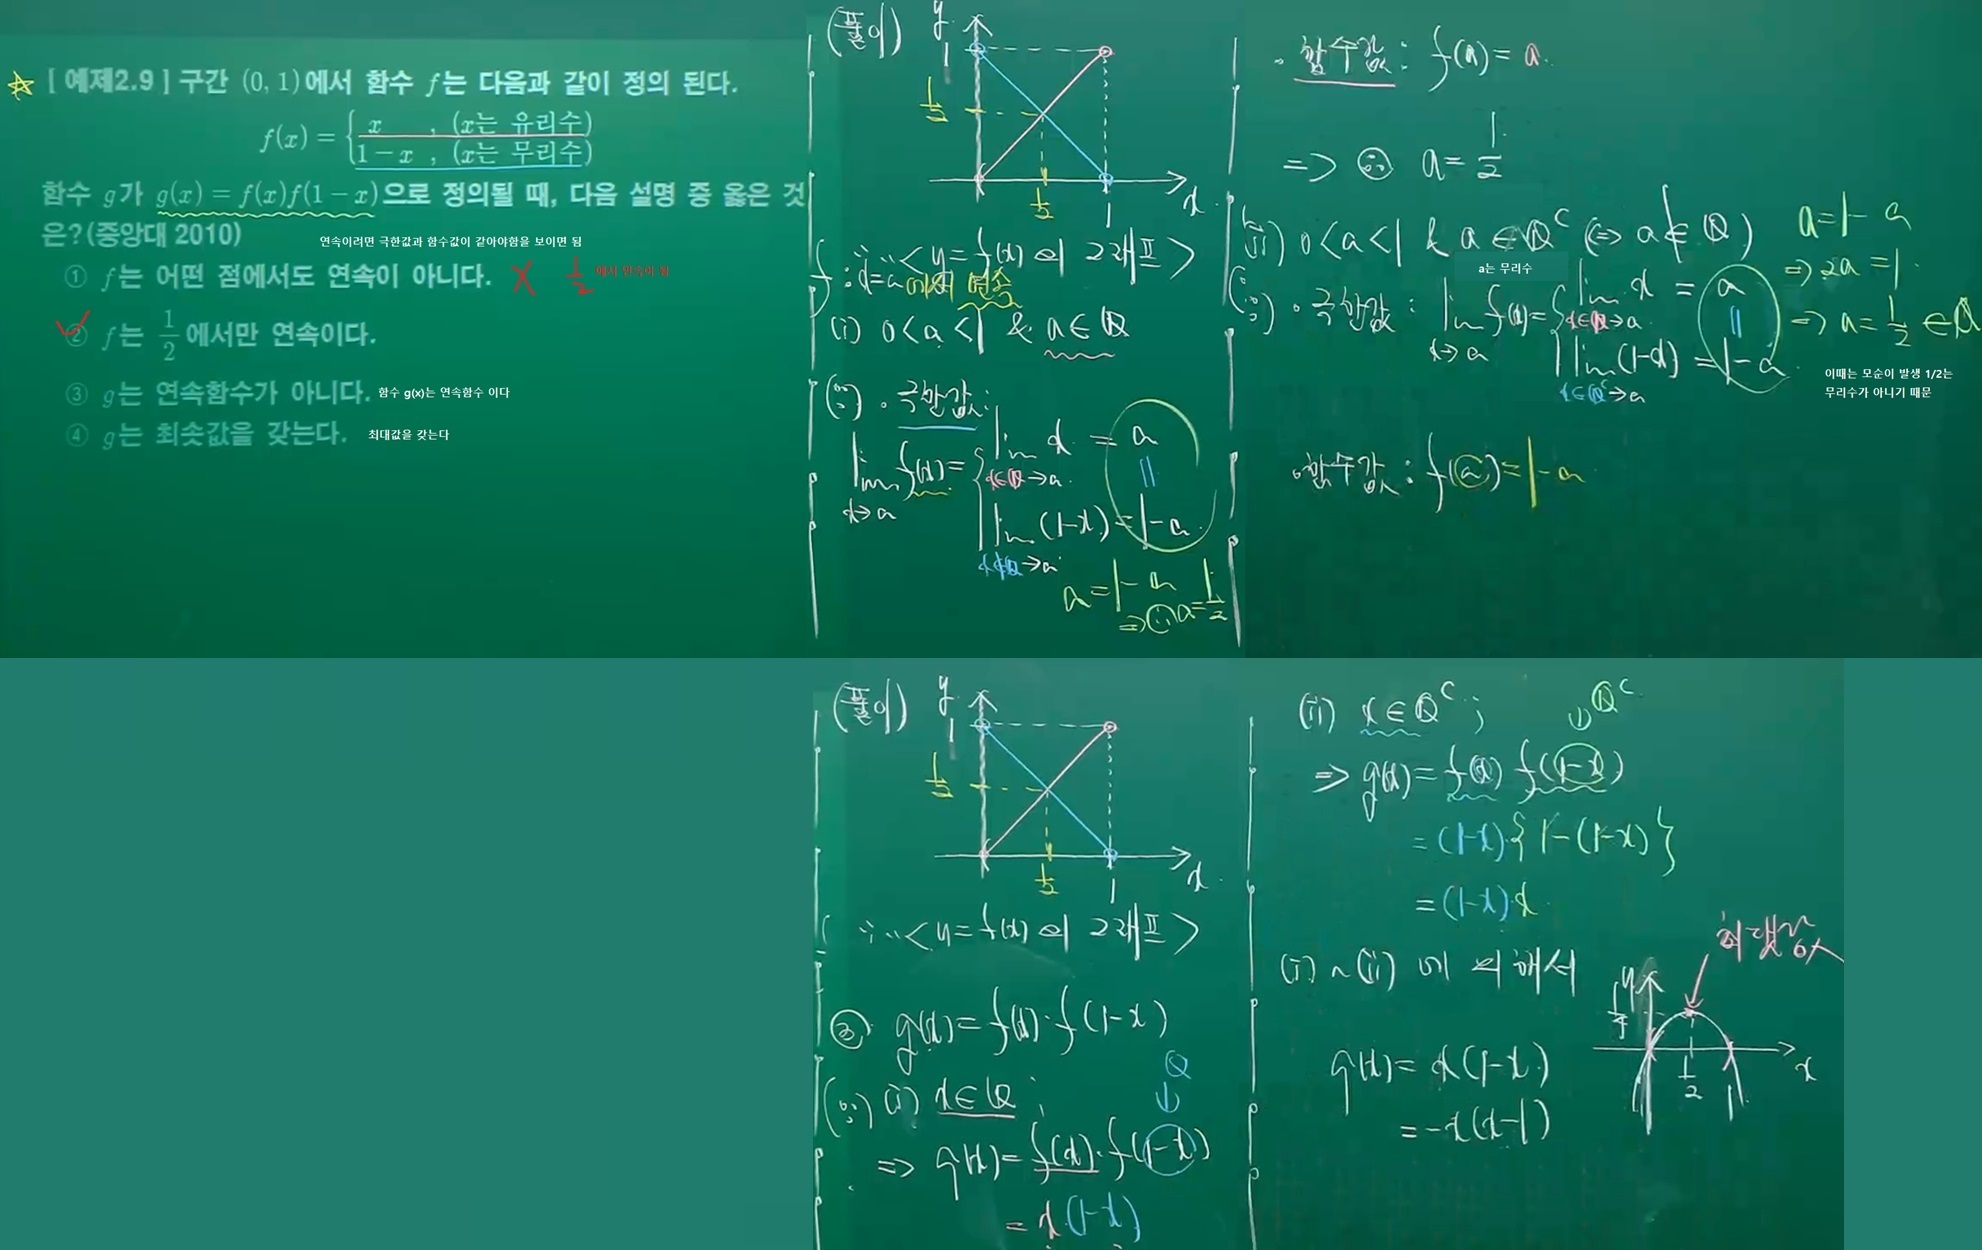 [ 예제2.9 ] 구간 (0, 1)에서 함수 f는 다음과 같이 정의 된다.
f(x) = { x , (x는 유리수)
1-x , (x는 무리수)
함수 g가 g(x) = f(x)f(1-x)으로 정의될 때, 다음 설명 중 옳은 것
은?(중앙대 2010)
연속이려면 극한값과 함수값이 같아야함을 보이면 됨
① f는 어떤 점에서도 연속이 아니다. X 1/2 에서 연속이 됨
② f는 1/2 에서만 연속이다.
③ g는 연속함수가 아니다. 함수 g(x)는 연속함수 이다
④ g는 최솟값을 갖는다. 최대값을 갖는다
(풀이)
y
1
1/2
1/2
1
x
<y=f(x)의 그래프>
f : x=a에서 연속
(i) 0<a<1 & a∈Q
(∵) · 극한값:
lim f(x) = { lim x = a
x→a
x∈Q→a
||
lim (1-x) = 1-a
x∉Q→a
a = 1-a
⇒ ∴ a = 1/2
· 함수값 : f(a) = a.
⇒ ∴ a = 1/2
(ii) 0<a<1 & a∈Q^C (⇔ a∉Q)
a는 무리수
(∵) · 극한값 : lim f(x) = { lim x = a
x→a
x∈Q→a
||
lim (1-x) = 1-a
x∈Q^C→a
a = 1-a
⇒ 2a = 1.
⇒ a = 1/2 ∈ Q
이때는 모순이 발생 1/2는
무리수가 아니기 때문
· 함수값 : f(a) = 1-a
(풀이)
y
1
1/2
1/2
1
x
<y=f(x)의 그래프>
③ g(x) = f(x)·f(1-x)
(∵) (i) x∈Q ;
Q
↓
⇒ g(x) = f(x)·f(1-x)
= x(1-x)
(ii) x∈Q^C ;
↓ Q^C
⇒ g(x) = f(x) f(1-x)
= (1-x){1-(1-x)}
= (1-x)x
(i)~(ii)에 의해서
g(x) = x(1-x)
= -x(x-1)
최댓값
y
1/4
1/2
1
x